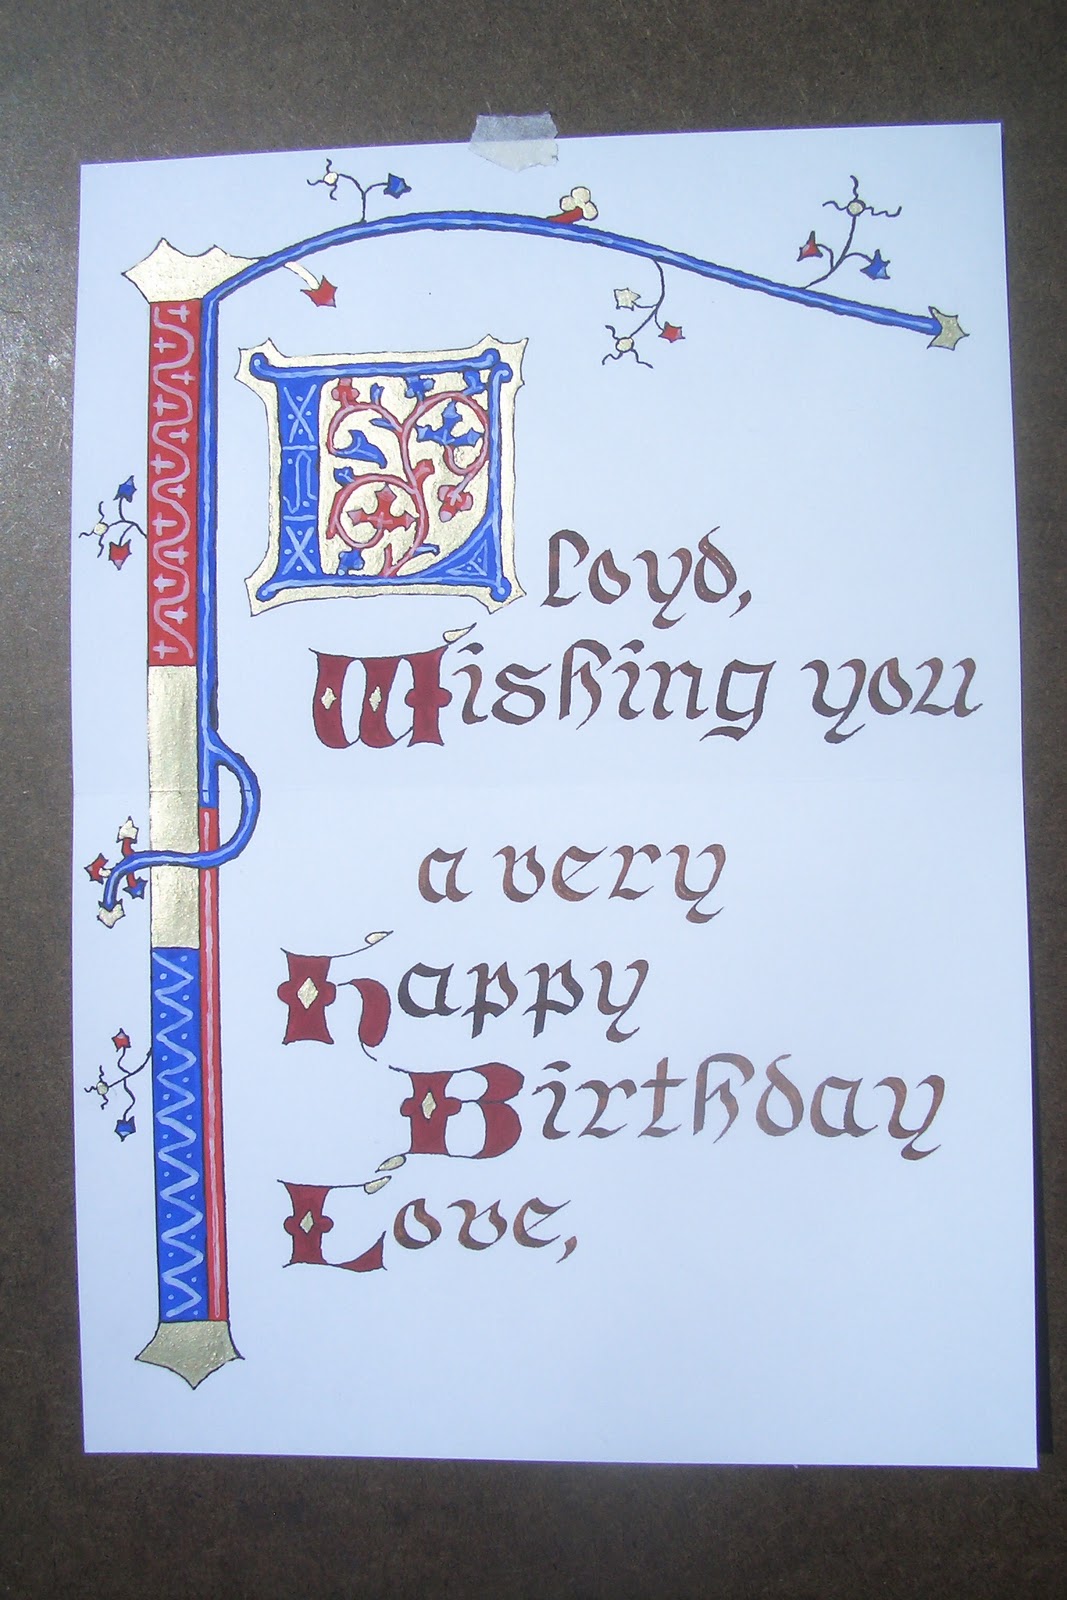 Lloyd,
Wishing you
a very
Happy
Birthday
Love,